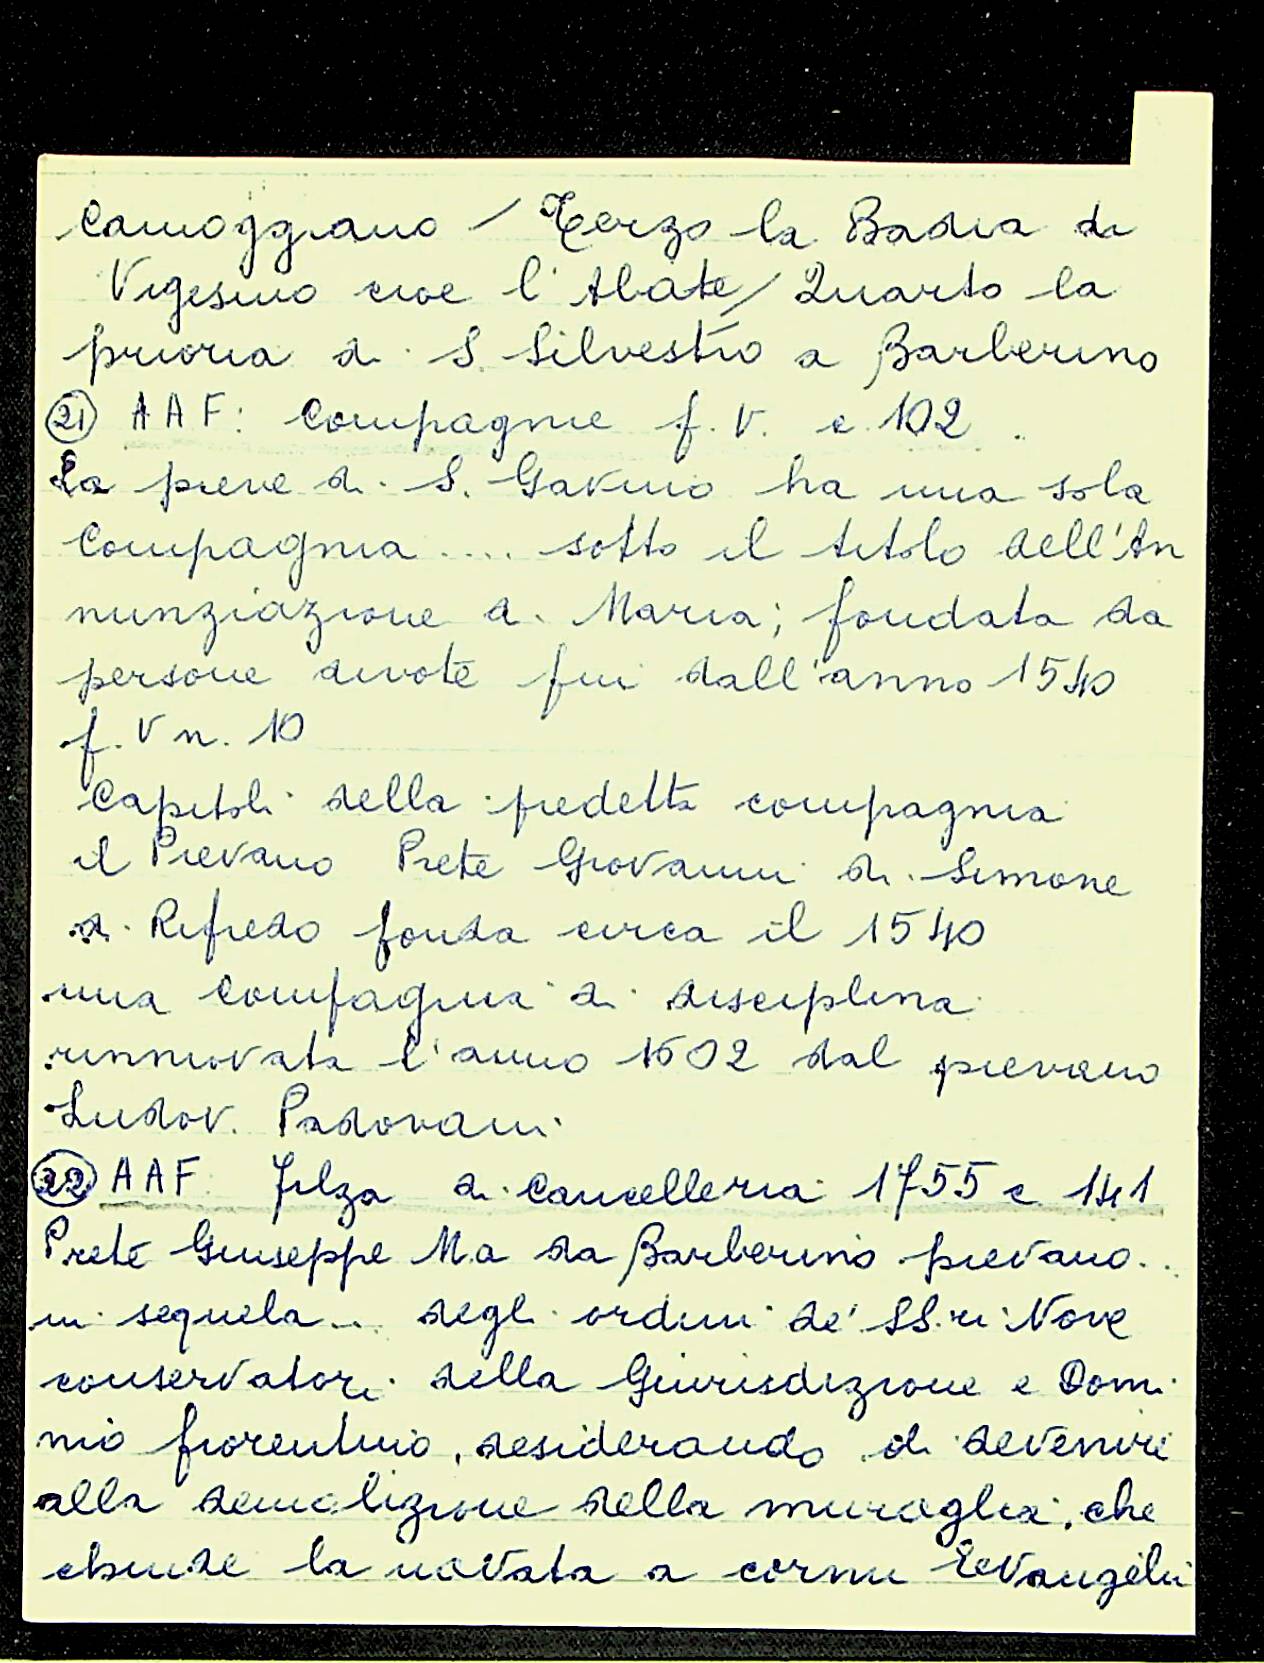 Camoggiano / Terzo la Badia di
Vigesimo cioe l'Abate / Quarto la
prioria di S. Silvestro a Barberino
21 AAF: Compagnie f. V. c. 102
La pieve di S. Gavino ha una sola
Compagnia .... sotto il titolo dell'An
nunziazione di Maria; fondata da
persone divote fin dall'anno 1540
f. V n. 10
Capitoli della predetta compagnia
il Pievano Prete Giovanni di Simone
di Rifredo fonda circa il 1540
una compagnia di disciplina
rinnovata l'anno 1602 dal pievano
Ludov. Padovani
22 AAF Filza di Cancelleria 1755 c 141
Prete Giuseppe M.a da Barberino pievano..
in sequela... degli ordini de' SS.ri Nove
conservatori della Giurisdizione e Domi
nio fiorentino, desiderando di devenire
alla demolizione della muraglia, che
chiude la navata a cornu Evangelii